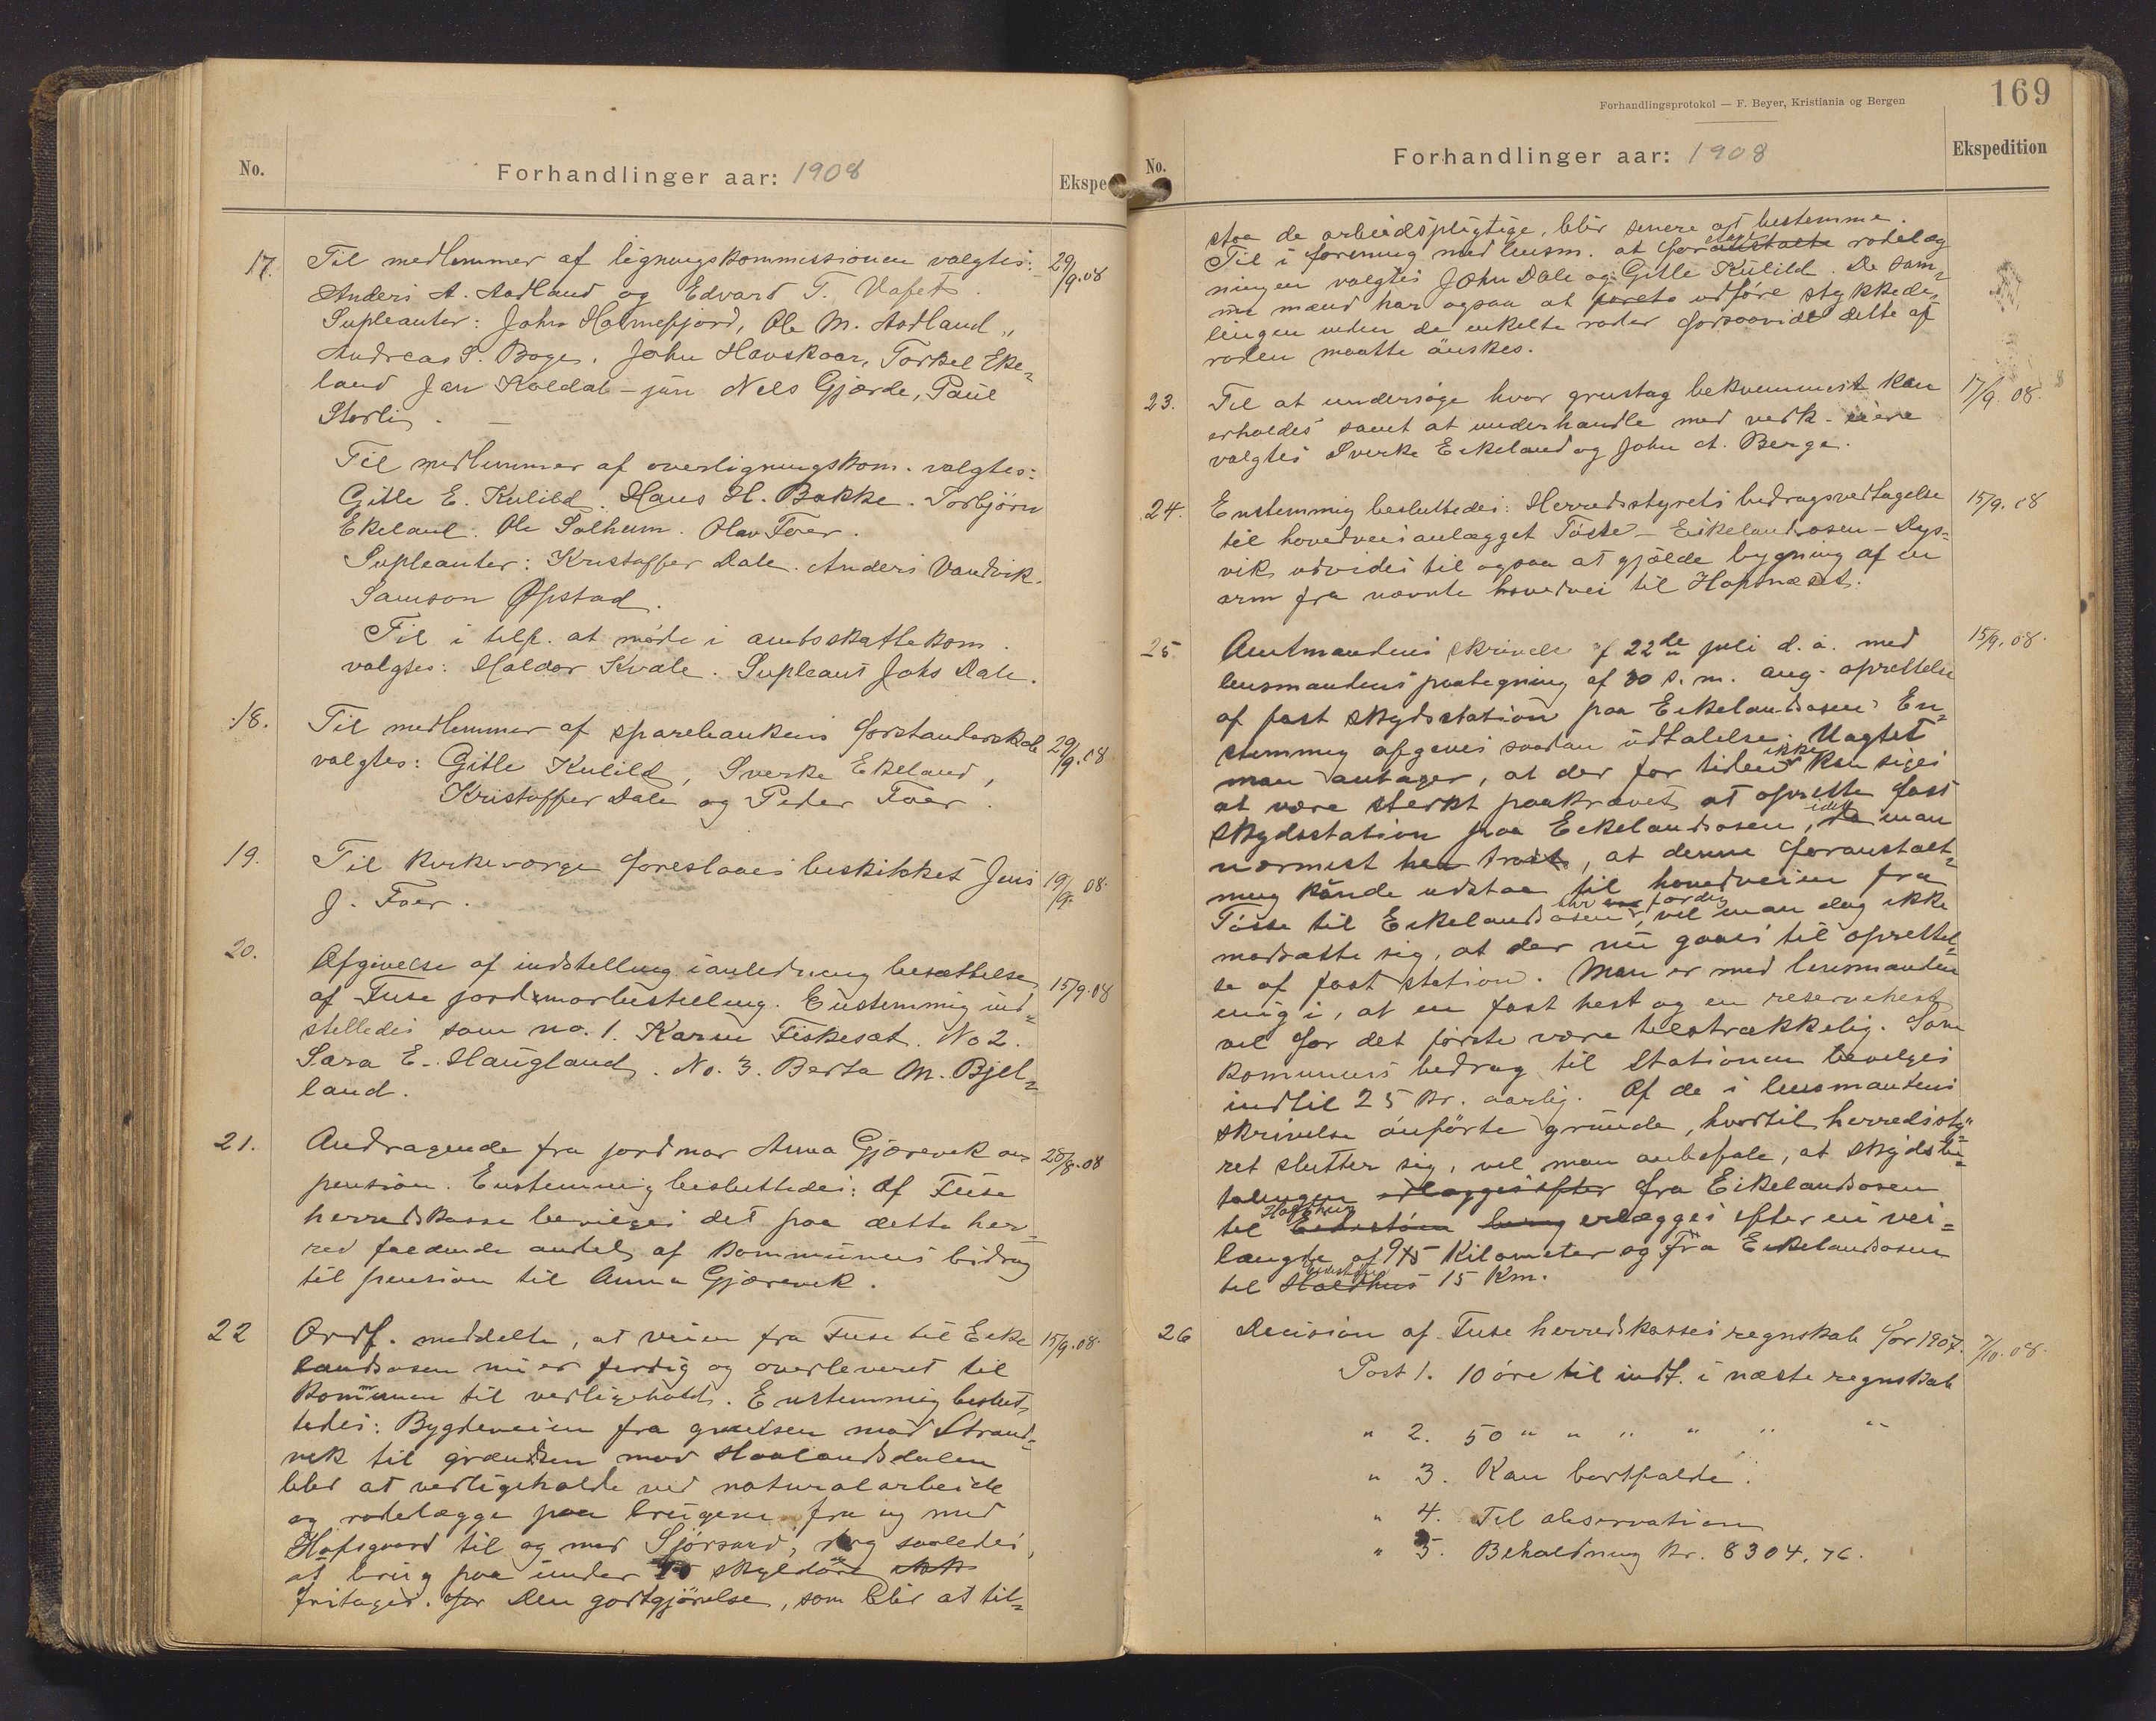 No.
Forhandlinger aar: 1908
Ekspe
17. Til medlemmer af ligningskommissionen valgtes: 29/9.08
Anders A. Aadland og Edvard T. Vafet.
Supleanter: John Holmefjord, Ole M. Aadland,
Andreas S. Boge. John Havskaar, Torkel Eke=
land Jan Koldal - jun Nels Gjærde, Paul
Storli. —
Til medlemmer af overligningskom. valgtes:
Gitle E. Kulild. Hans H. Bakke. Torbjørn
Ekeland. Ole Solheim. Olav Foer.
Supleanter: Kristoffer Dale. Anders Vandvik.
Samson Øpstad.
Til i tilf. at møde i amtsskattekom.
valgtes: Haldor Kvale. Supleant Johs Dale.
18. Til medlemmer af sparebankens forstanderskab 29/9.08
valgtes: Gitle Kulild, Sverke Ekeland,
Kristoffer Dale og Peder Foer.
19. Til kirkeværge foreslaaes beskikket Jens 19/9.08.
J. Foer.
20. Afgivelse af indstelling i anledning besættelse
af Fuse jordmorbestilling. Enstemmig ind= 15/9.08
stilledes som no. 1. Karen Fiskesæt. No 2.
Sara E. Haugland. No. 3. Berta M. Bjel=
land.
21. Andragende fra jordmor Anna Gjærevik om 28/8.08
pension. Enstemmig besluttedes: Af Fuse
herredskasse bevilges det paa dette her=
red faldende andel af kommunens bidrag
til pension til Anna Gjærevik.
22 Ordf. meddelte, at veien fra Fuse til Eeke 15/9.08.
landsosen nu er ferdig og overleveret til
kommunen til vedligehold. Enstemmig beslut,
tedes: Bygdeveien fra grændsen mod Strand=
vik til grændsen mod Haalandsdalen
blir at vedligeholde ved naturalarbeide
og rodelægge paa brugene fra og med
Hafsgaard til og med Sjørsand, dog saaledes,
at brug paa under 10 skyldøre
fritages. for Den godtgjørelse, som blir at til=
Forhandlingsprotokol — F. Beyer, Kristiania og Bergen
169
No.
Forhandlinger aar: 1908
Ekspedition
staa de arbeidspligtige, blir senere at bestemme.
Til i forening med lensm. at foranstalte rodelæg
ningen valgtes John Dale og Gitle Kulild. De sam=
me mænd har ogsaa at foreta udføre stykkede=
lingen inden de enkelte roder forsaavidt dette af
roden maatte ønskes.
23. Til at undersøge hvor grustag bekvemmest kan 17/9.08.
erholdes samt at underhandle med vedk. eiere
valgtes Sverke Eekeland og John A. Berge.
24. Enstemmig besluttedes: Herredsstyrets bidragsvedtagelse 15/9.08
til hovedveianlægget Tøsse – Eikelandsosen – Døs=
vik udvides til ogsaa at gjælde bygning af en
arm fra nævnte hovedvei til Hopsnæset.
25 Amtmandens skrivelse af 22de juli d.a. med 15/9.08.
lensmandens paategning af 30 s.m. ang. oprettelse
af fast skydsstation paa Eekelandsosen. En=
stemmig afgives saadan udtalelse: Uagtet
man antager, at der for tiden ikke kan siges
at være sterkt paakrævet at oprette fast
skydsstation paa Eekelandsosen, da idet man
nærmest har troet, at denne foranstalt=
ning kunde udstaa til hovedveien fra
Tøsse til Eekelandsosen blir færdig, vil man dog ikke
modsætte sig, at der nu gaaes til oprettel=
se af fast station. Man er med lensmanden
enig i, at en fast hest og en reservehest
vil for det første være tilstrækkelig. Som
kommunens bidrag til Stationen bevilges
indtil 25 kr. aarlig. Af de i lensmandens
skrivelse anførte grunde, hvortil herredssty=
ret slutter sig, vil man anbefale, at skydsbe=
talingen erlægges efter fra Eikelandsosen
til erlægges efter en vei=
længde af 9 Kilometer og fra Eekelandsosen
til Holdhus 15 Km.
26 Decision af Fuse herredskasses regnskab for 1907. 7/10.08.
Post 1. 10 øre til indt. i næste regnskab
" 2. 50 " " " " " "
" 3. Kan bortfalde.
" 4. Til observation
" 5. Beholdning kr. 8304.76.